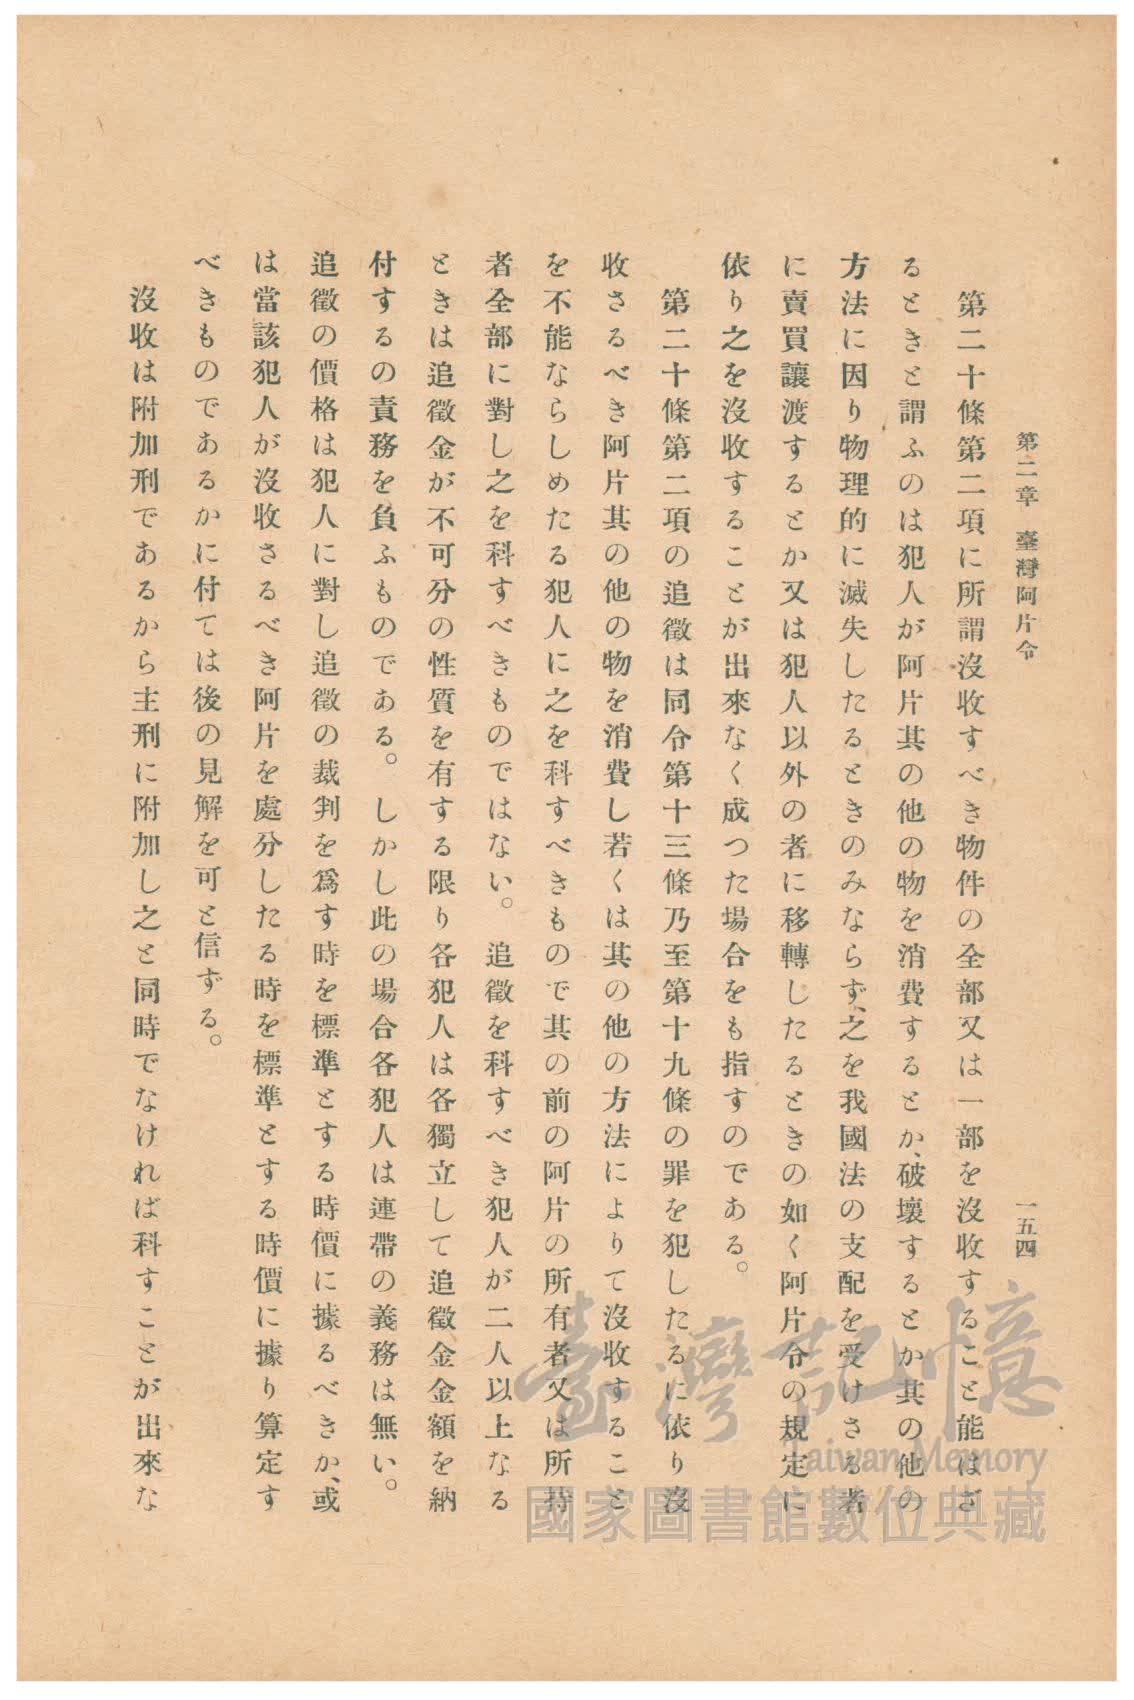 第二章　臺灣阿片令
一五四
第二十條第二項に所謂沒收すべき物件の全部又は一部を沒收すること能はざ
るときと謂ふのは犯人が阿片其の他の物を消費するとか、破壞するとか其の他の
方法に因り物理的に滅失したるときのみならず、之を我國法の支配を受けさる者
に賣買讓渡するとか又は犯人以外の者に移轉したるときの如く阿片令の規定に
依り之を沒收することが出來なく成つた場合をも指すのである。
第二十條第二項の追徵は同令第十三條乃至第十九條の罪を犯したるに依り沒
收さるべき阿片其の他の物を消費し若くは其の他の方法によりて沒收すること
を不能ならしめたる犯人に之を科すべきもので其の前の阿片の所有者又は所持
者全部に對し之を科すべきものではない。追徵を科すべき犯人が二人以上なる
ときは追徵金が不可分の性質を有する限り各犯人は各獨立して追徵金金額を納
付するの責務を負ふものである。しかし此の場合各犯人は連帶の義務は無い。
追徵の價格は犯人に對し追徵の裁判を爲す時を標準とする時價に據るべきか、或
は當該犯人が沒收さるべき阿片を處分したる時を標準とする時價に據り算定す
べきものであるかに付ては後の見解を可と信ずる。
沒收は附加刑であるから主刑に附加し之と同時でなければ科すことが出來な
臺灣記憶
Taiwan Memory
國家圖書館數位典藏